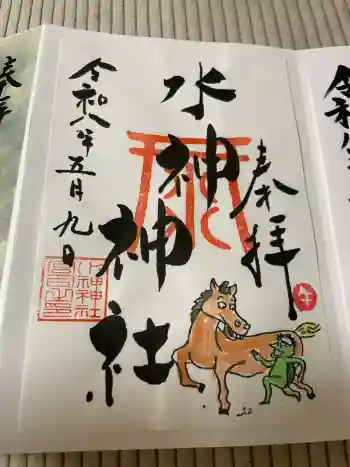 奉拝
水神神社
令和八年五月九日